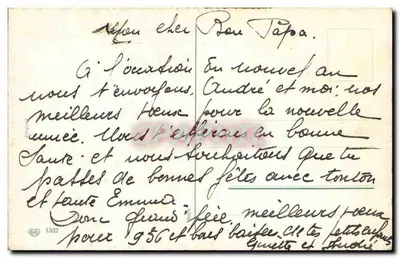 Mon cher Bon Papa.
A l'occasion du nouvel an
nous t'envoyons, André et moi, nos
meilleurs vœux pour la nouvelle
année. Nous t'espérons en bonne
santé et nous souhaitons que tu
passes de bonnes fêtes avec tonton
et tante Emma.
Donc Grand-Père, meilleurs vœux
pour 1956 et bons baisers de tes petits enfants
Ginette et André
1332